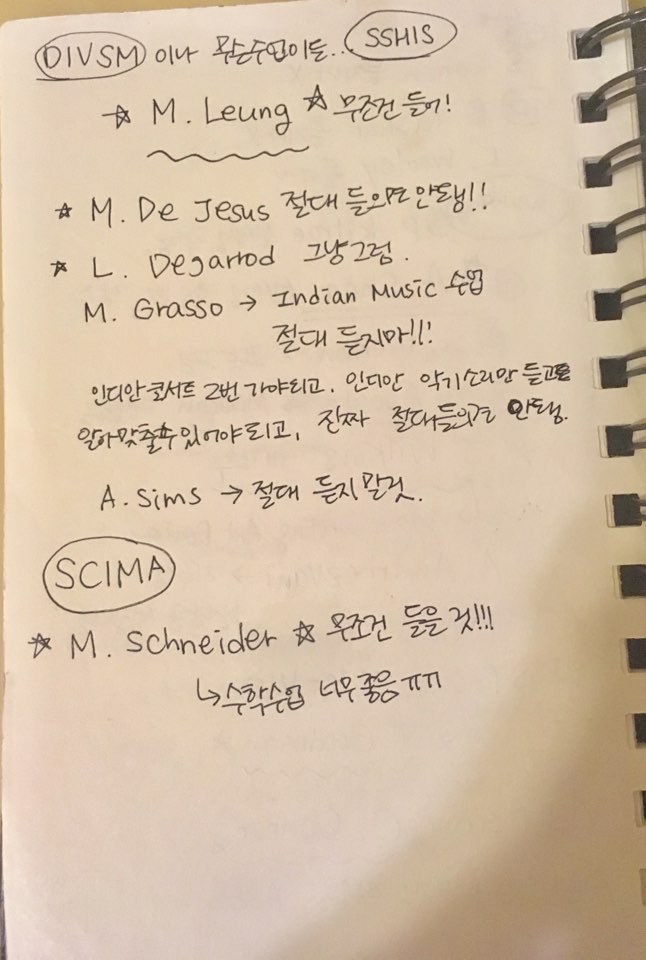 DIVSM 이나 무슨수업이든.. SSHIS
☆ M. Leung ☆ 무조건 들어!
☆ M. De Jesus 절대 들으면 안됑!!
☆ L. Degarrod 그냥그럼.
M. Grasso → Indian Music 수업
절대 듣지마!!!
인디안콘서트 2번 가야되고. 인디안 악기소리만 듣고도
알아맞출수있어야되고, 진짜 절대들으면 안됑.
A. Sims → 절대 듣지말것.
SCIMA
☆ M. Schneider ☆ 무조건 들을것!!!
↳수학수업 너무좋음ㅠㅠ